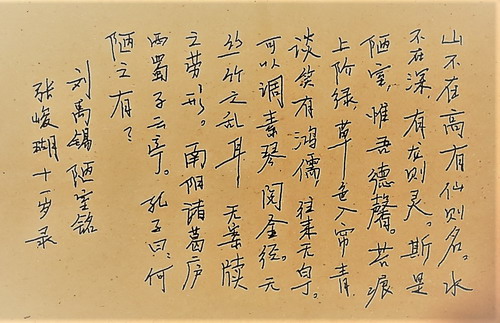 山不在高有仙则名。水
不在深，有龙则灵。斯是
陋室，惟吾德馨。苔痕
上阶绿草色入帘青
谈笑有鸿儒，往来无白丁。
可以调素琴阅金经。无
丝竹之乱耳无案牍
之劳形。南阳诸葛庐
西蜀子云亭。孔子曰：何
陋之有？
刘禹锡陋室铭
张峻瑚十一岁录